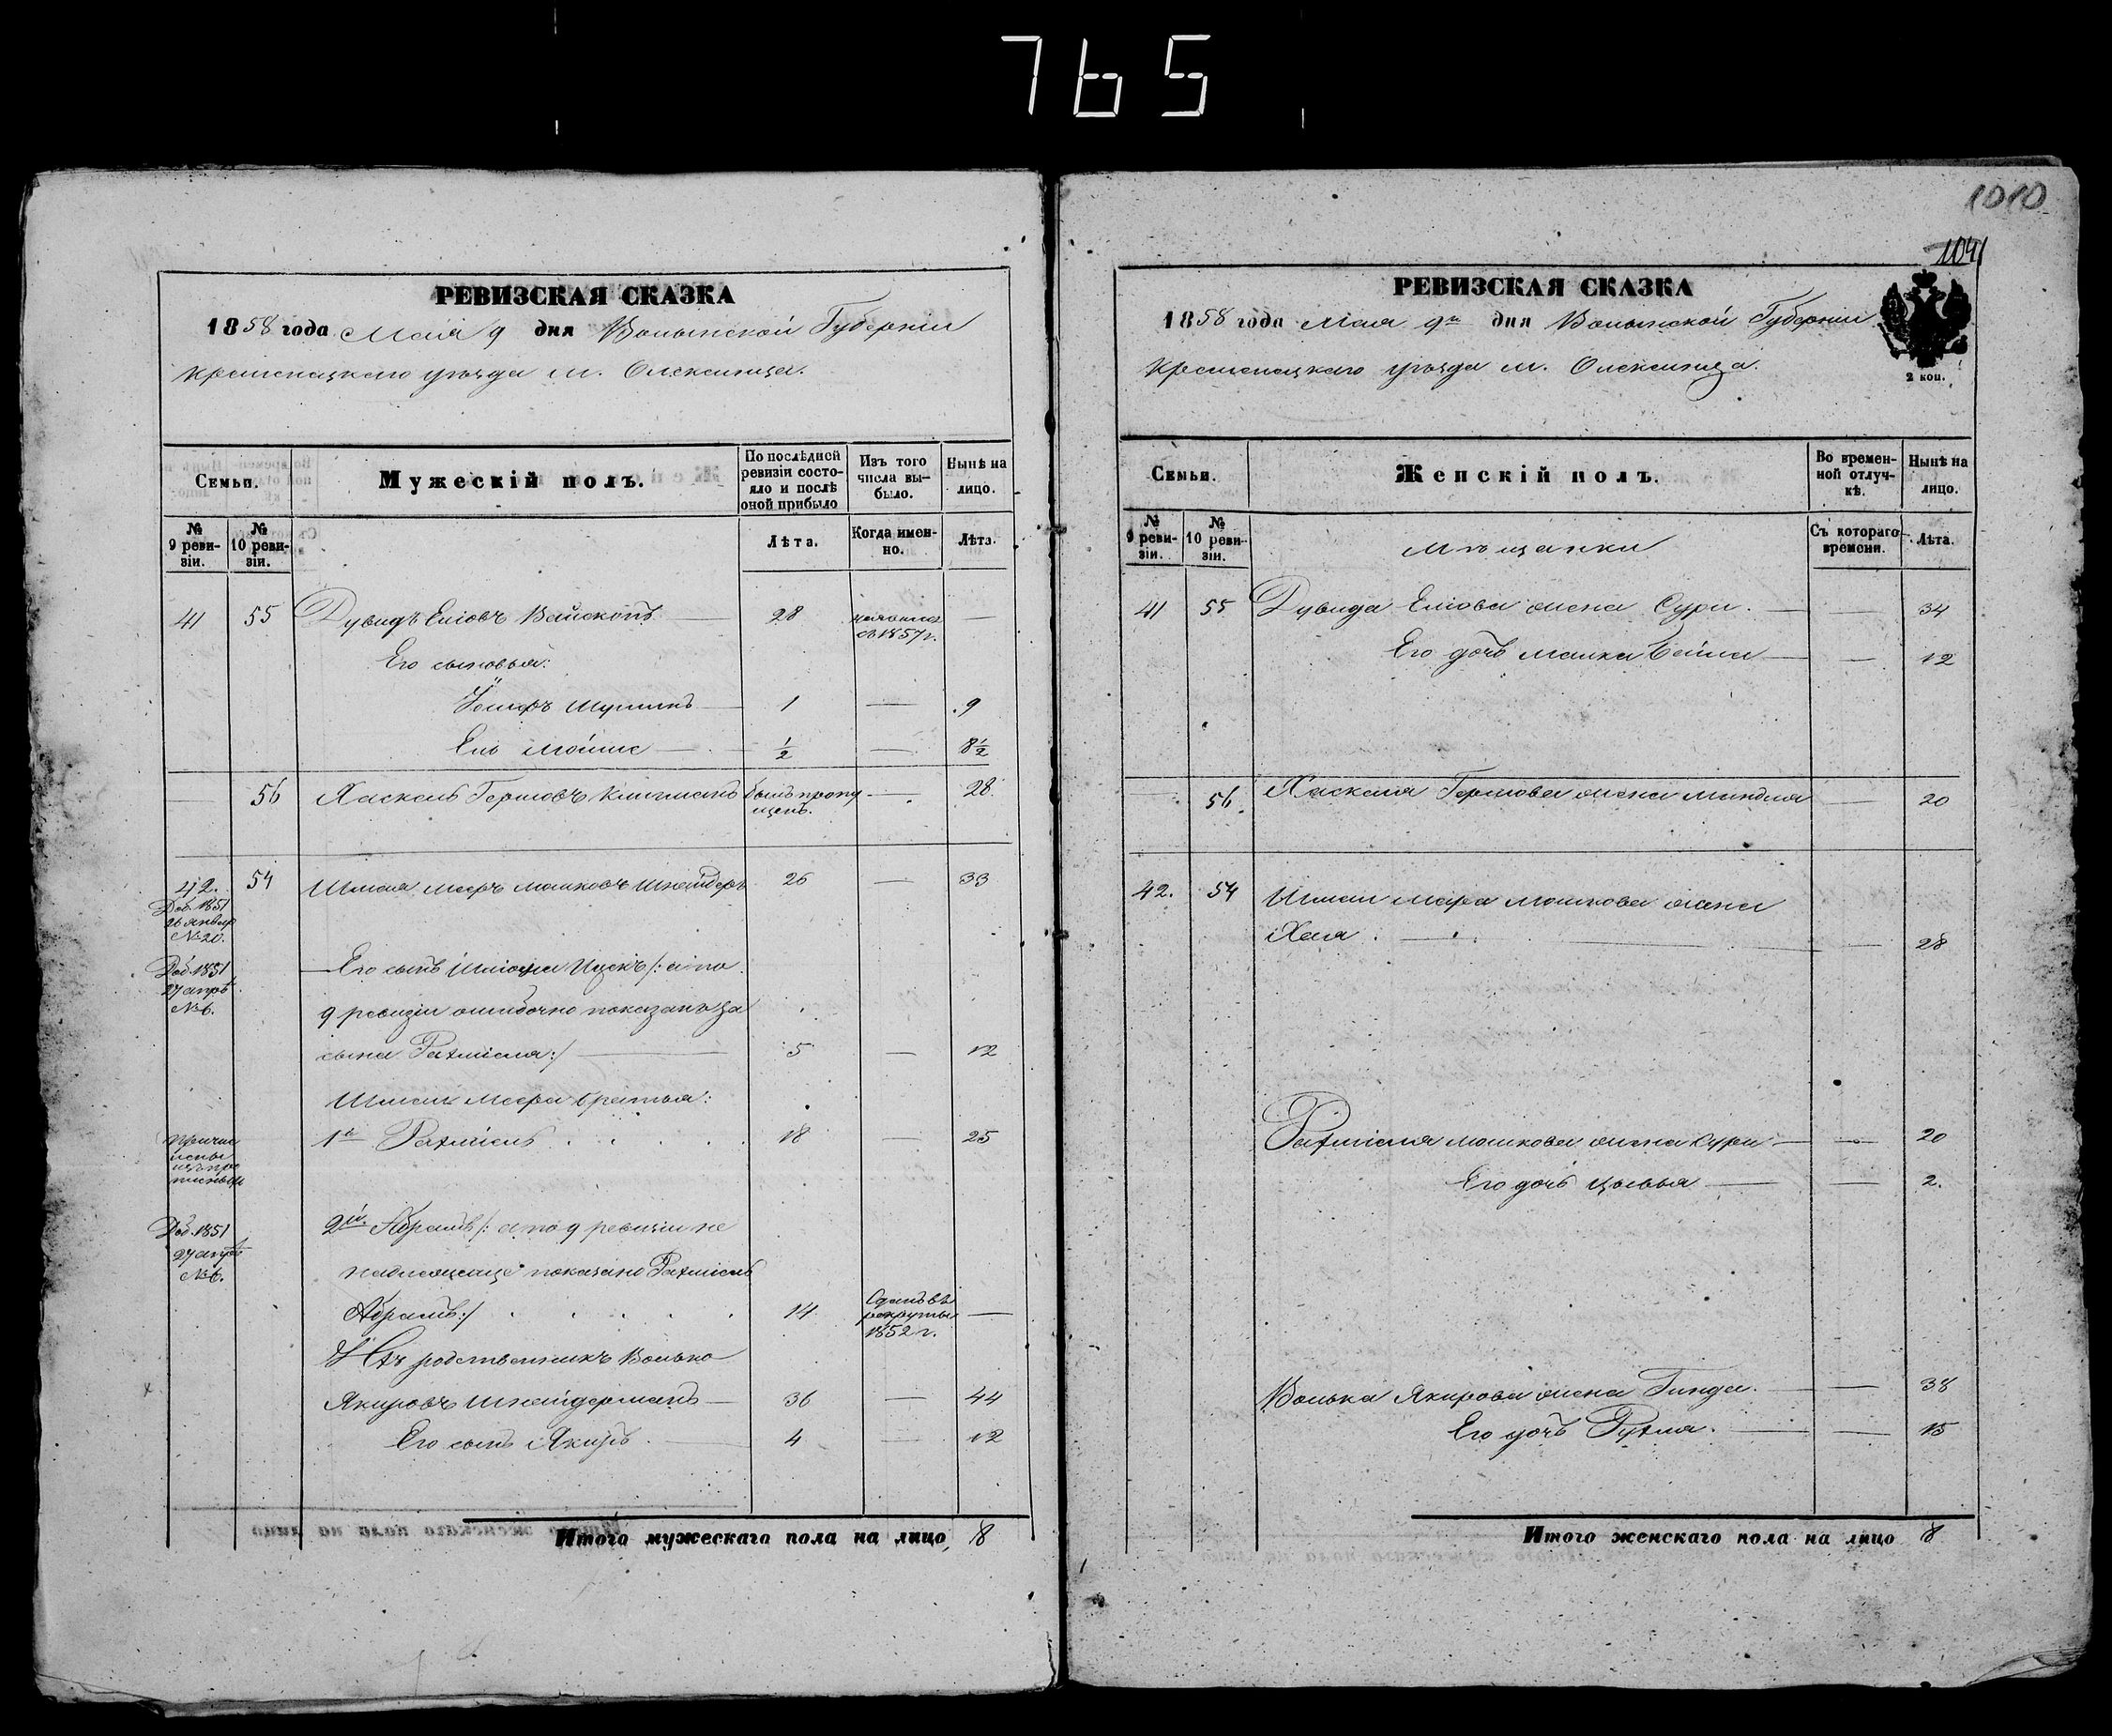 765
1010
1041
РЕВИЗСКАЯ СКАЗКА
1858 года Мая 9 дня Волынской Губернии
Кременецкаго уѣзда м. Олексинца.
Семьи.
Мужескій полъ.
По послѣдней ревизіи состояло и послѣ оной прибыло
Изъ того числа выбыло.
Нынѣ на лицо.
№ 9 ревизіи.
№ 10 ревизіи.
Лѣта.
Когда именно.
Лѣта.
41 55 Дувидъ Еліовъ Вайскопъ 28 1857 г. —
Его сыновья:
Шулимъ 1 — 9
Ель Мойше ½ — 8½
56 Хаскель Гершовъ Клигманъ былъ пропущенъ. — 28
42. 54 Шмая Мееръ Мошковъ Шнейдеръ 26 — 33
Доб. 1851
26 январ
№ 20.
Доб. 1851
27 апрѣ
№ 6.
Его сынъ Ицекъ /: а по
9 ревизіи ошибочно показанъ за
сына Рахміеля :/ 5 — 12
Шмаи Меера братья:
1й Рахміель 18 — 25
Доб. 1851
27 апрѣ
№ 6.
2й Абрамъ /: а по 9 ревизіи не
показано Рахміель
Абрамъ :/ 14 Сданъ въ рекруты 1852 г. —
Ихъ родственникъ Волько
Якировъ Шнейдерманъ 36 — 44
Его сынъ Якиръ 4 — 12
Итого мужескаго пола на лицо 8
РЕВИЗСКАЯ СКАЗКА
1858 года Мая 9го дня Волынской Губернии
Кременецкаго уѣзда м. Олексинца.
2 коп.
Семьи.
Женскій полъ.
Во временной отлучкѣ.
Нынѣ на лицо.
№ 9 ревизіи.
№ 10 ревизіи.
Мѣщанки
Съ котораго времени.
Лѣта.
41 55 Дувида Еліова жена Сура. — 34
Его дочь Малка Бейла — 12
56. Хаскеля Гершова жена Миндля — 20
42. 54 Шмаи Меера Мошкова жена
Хая. — 28
Рахміеля Мошкова жена Сура — 20
Его дочь Цывья — 2.
Волька Якирова жена Гинда. — 38
Его дочь Рухля. — 15
Итого женскаго пола на лицо 8